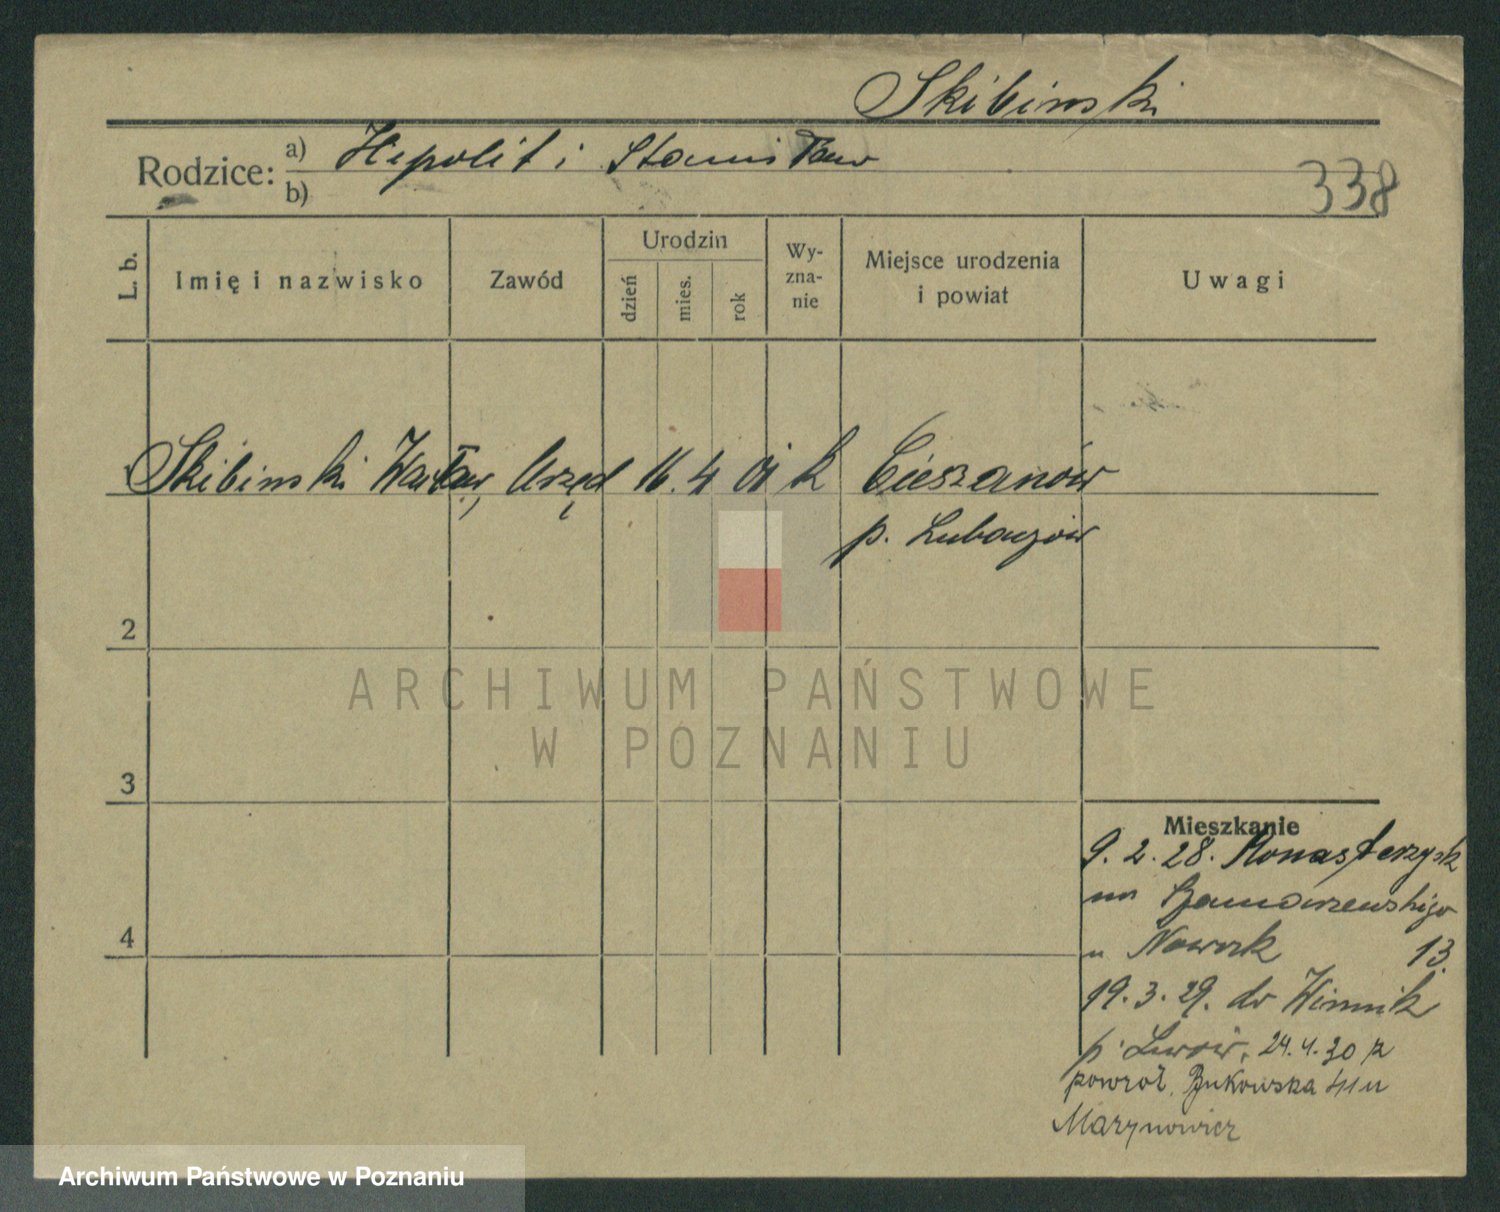 Skibinski
Rodzice: a) Hipolit i Stanisława
b)
338
L. b.
Imię i nazwisko
Zawód
Urodzin
dzień
mies.
rok
Wy-
zna-
nie
Miejsce urodzenia
i powiat
Uwagi
Skibinski Wacław, Urzęd 16. 4 01 k Cieszanów
p. Lubaczów
2
3
4
ARCHIWUM PAŃSTWOWE
W POZNANIU
Mieszkanie
9. 2. 28. Monasterzysk
13.
19. 3. 29. do Winnik
p. Lwów, 24.4.30 z
powrot. Bukowska u
Marynowicz
Archiwum Państwowe w Poznaniu